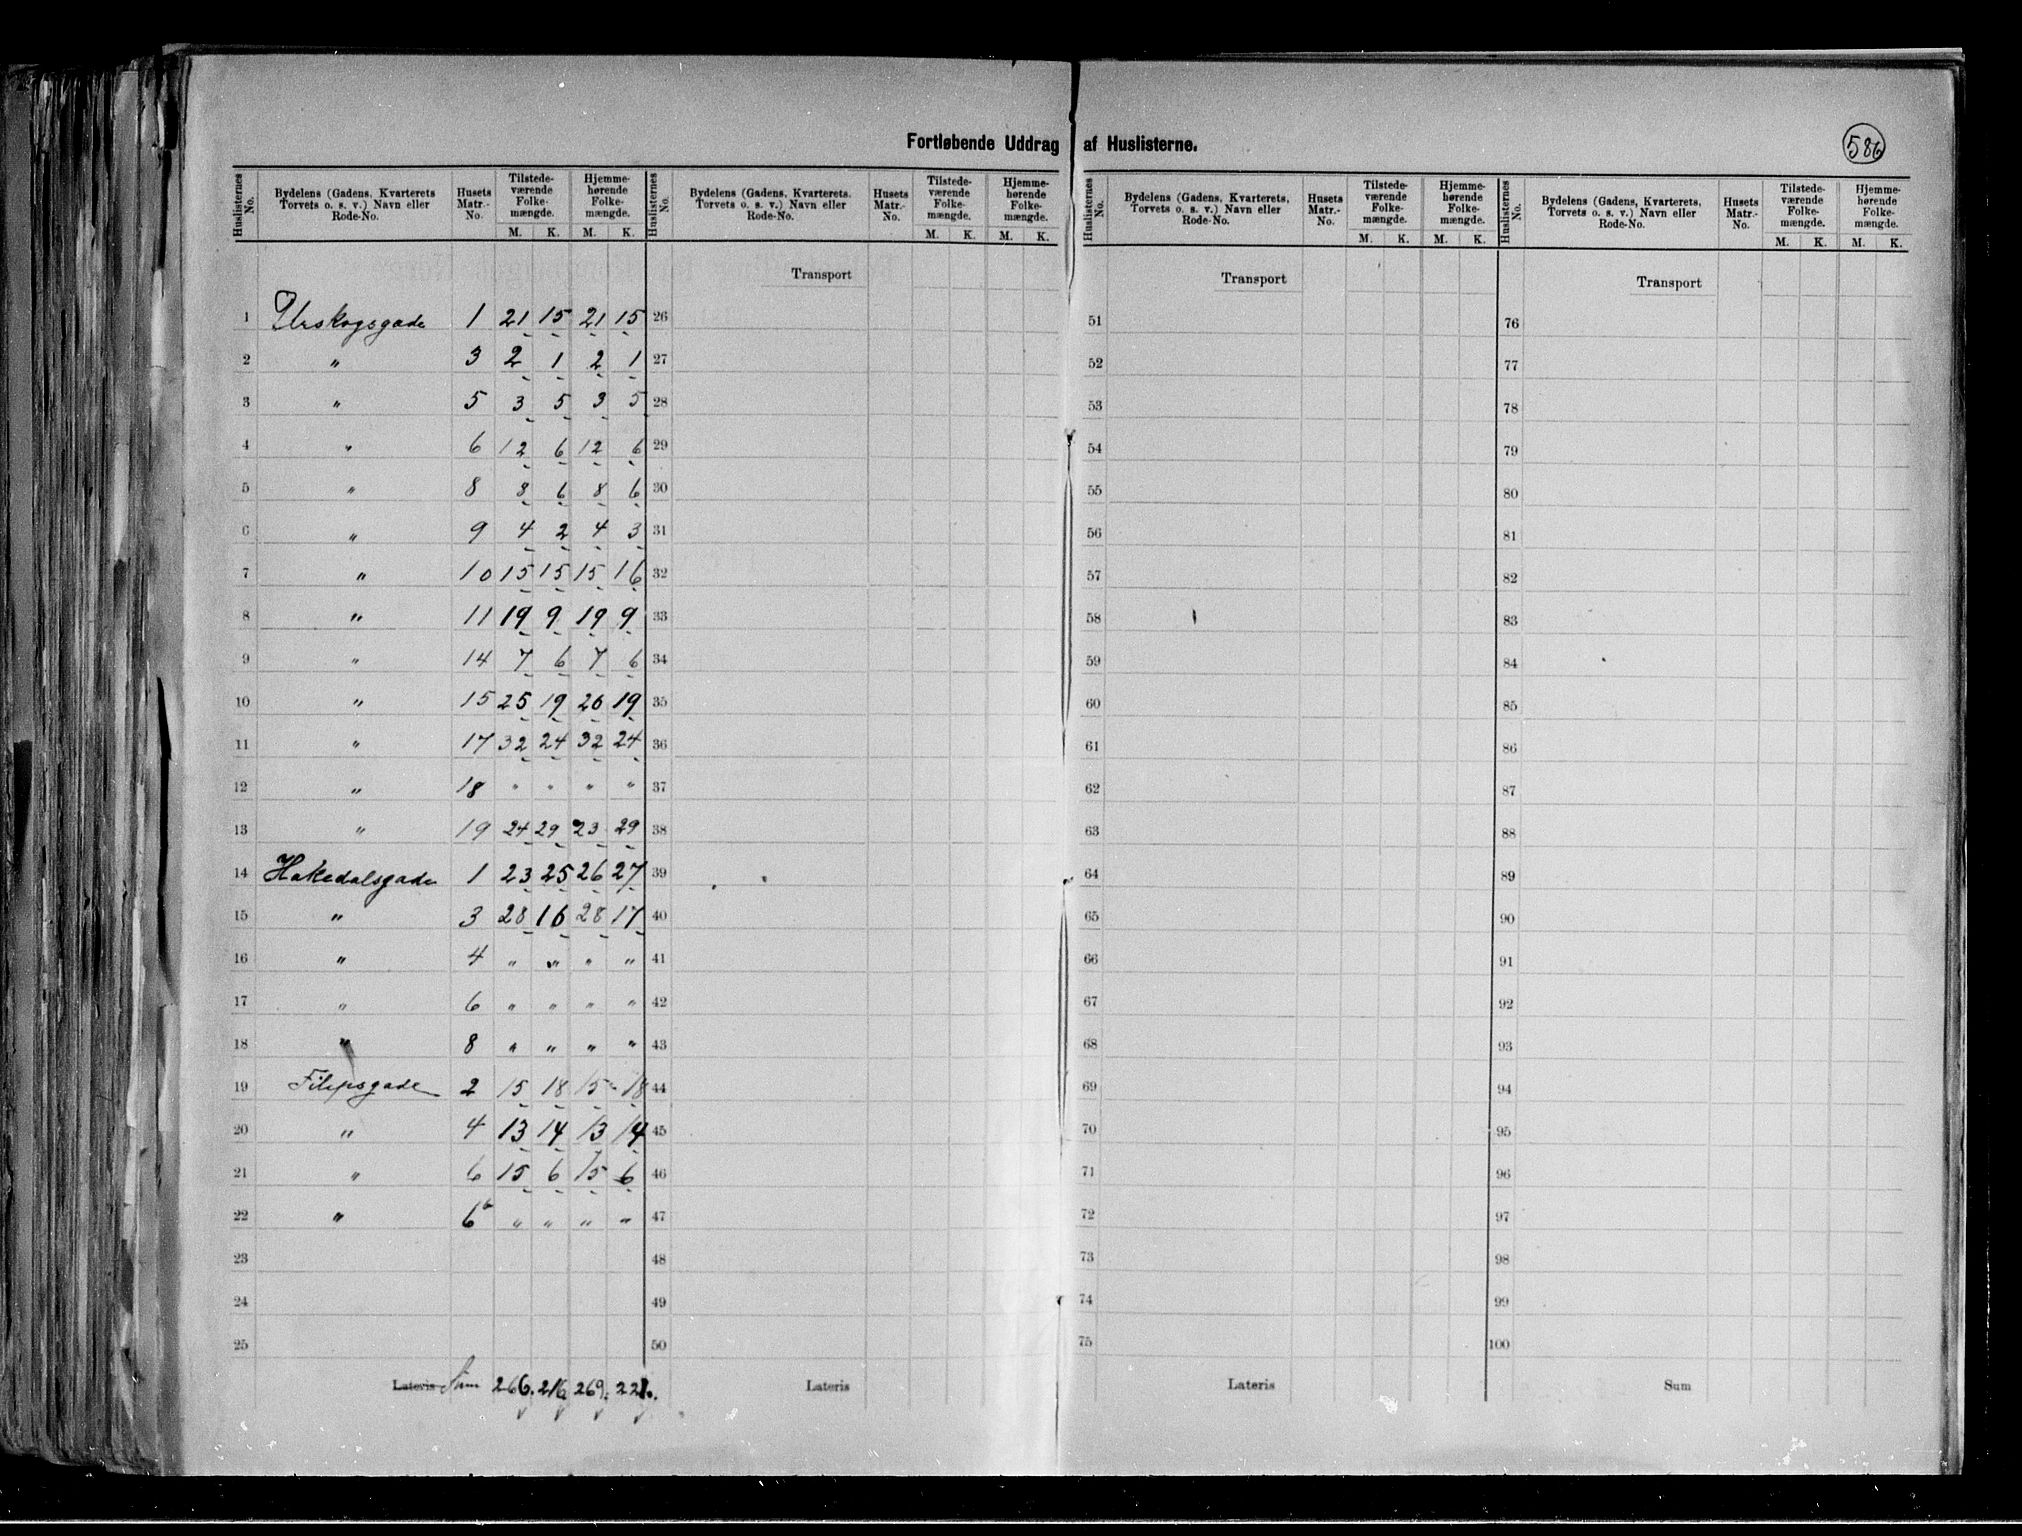 Fortløbende Uddrag af Huslisterne.
586
Huslisternes No. Bydelens (Gadens, Kvarterets Torvets o. s. v.) Navn eller Rode-No. Husets Matr.-No. Tilstedeværende Folkemængde. M. K. Hjemmehørende Folkemængde. M. K.
Huslisternes No. Bydelens (Gadens, Kvarterets, Torvets o. s. v.) Navn eller Rode-No. Husets Matr.-No. Tilstedeværende Folkemængde. M. K. Hjemmehørende Folkemængde. M. K.
Huslisternes No. Bydelens (Gadens, Kvarterets, Torvets o. s. v.) Navn eller Rode-No. Husets Matr.-No. Tilstedeværende Folkemængde. M. K. Hjemmehørende Folkemængde. M. K.
Huslisternes No. Bydelens (Gadens, Kvarterets, Torvets o. s. v.) Navn eller Rode-No. Husets Matr.-No. Tilstedeværende Folkemængde. M. K. Hjemmehørende Folkemængde. M. K.
Transport Transport Transport
1 Urskogsgade 1 21 15 21 15 26 51 76
2 " 3 2 1 2 1 27 52 77
3 " 5 3 5 3 5 28 53 78
4 " 6 12 6 12 6 29 54 79
5 " 8 8 6 8 6 30 55 80
6 " 9 4 2 4 3 31 56 81
7 " 10 15 15 15 16 32 57 82
8 " 11 19 9 19 9 33 58 83
9 " 14 7 6 7 6 34 59 84
10 " 15 25 19 26 19 35 60 85
11 " 17 32 24 32 24 36 61 86
12 " 18 " " " " 37 62 87
13 " 19 24 29 23 29 38 63 88
14 Hakedalsgade 1 23 25 26 27 39 64 89
15 " 3 28 16 28 17 40 65 90
16 " 4 " " " " 41 66 91
17 " 6 " " " " 42 67 92
18 " 8 " " " " 43 68 93
19 Filipsgade 2 15 18 15 18 44 69 94
20 " 4 13 14 13 14 45 70 95
21 " 6 15 6 15 6 46 71 96
22 " 6b " " " " 47 72 97
23 48 73 98
24 49 74 99
25 50 75 100
Lateris Sum 266. 216. 269. 221. Lateris Lateris Sum